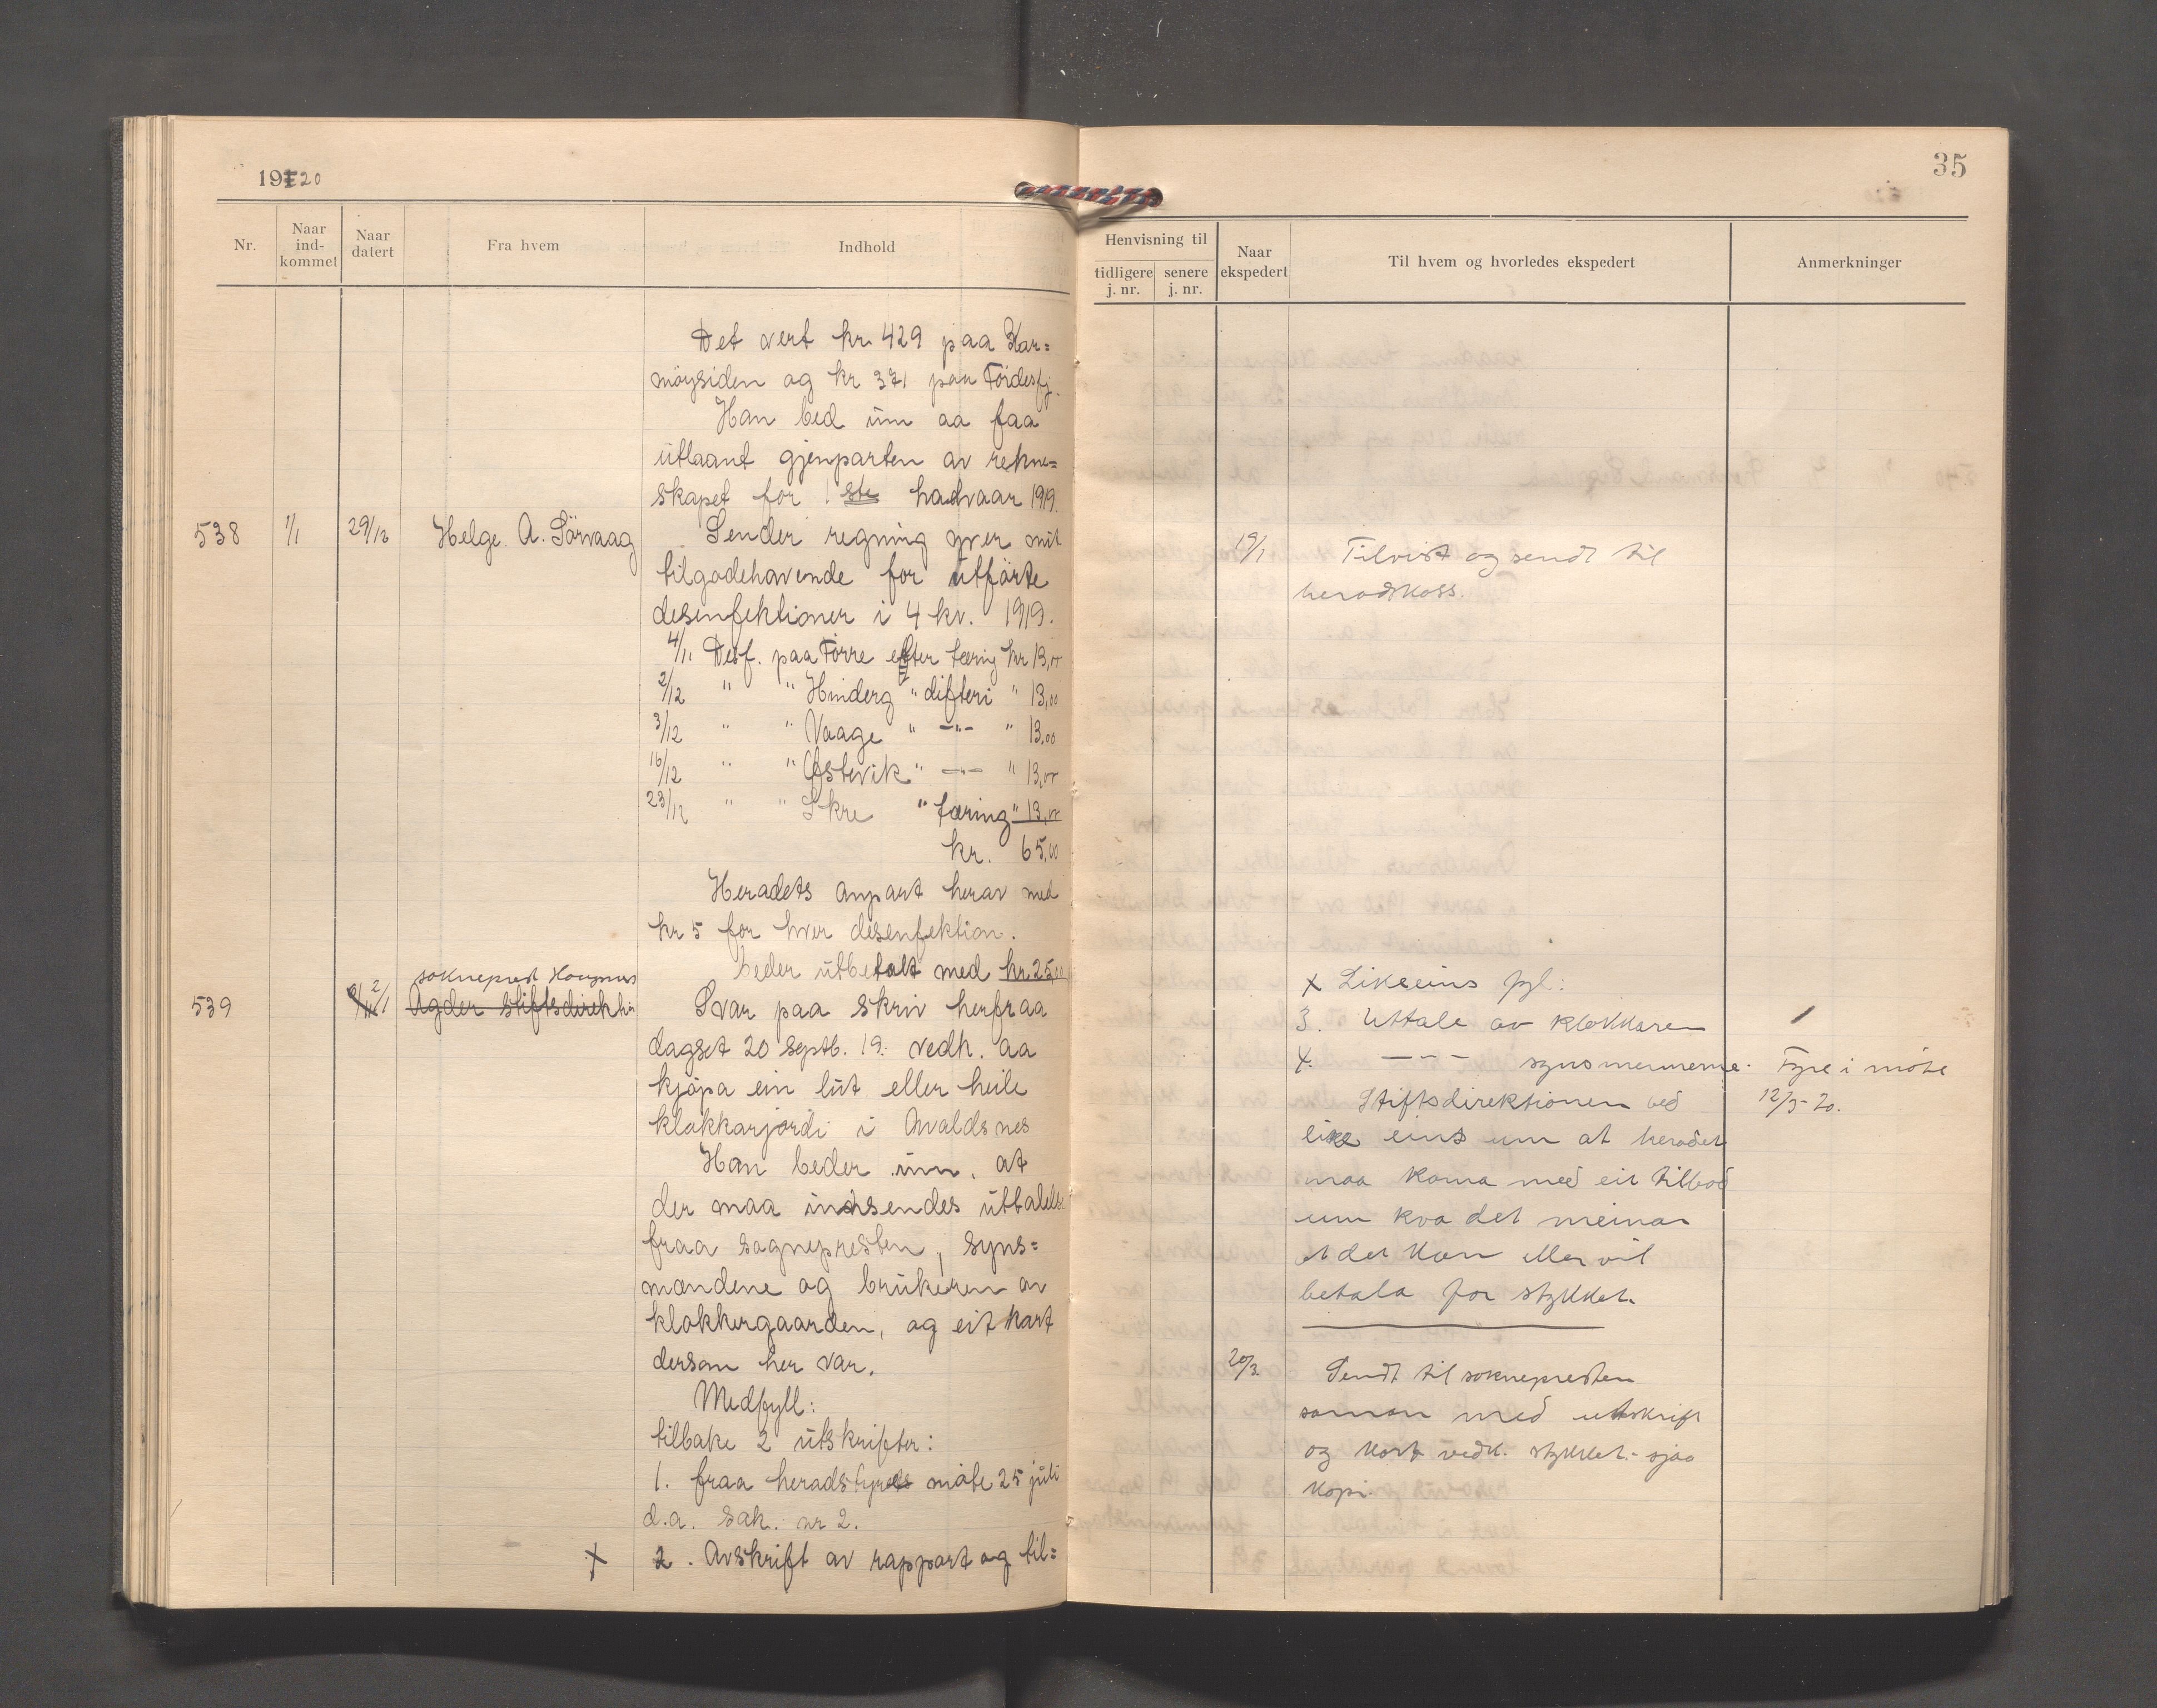 1920
35
Nr.
Naar ind-kommet
Naar datert
Fra hvem
Indhold
Henvisning til
tidligere j. nr.
senere j. nr.
Naar ekspedert
Til hvem og hvorledes ekspedert
Anmerkninger
Det vert kr. 429 paa Kar=
möysiden og kr 371 paa Fördesfj.
Han bed um aa faa
utlaant gjenparten av rekne=
skapet for 1ste halvaar 1919.
538 1/1 29/12 Helge A. Sörvaag Sender regning yver mit
tilgodehavende for utförte
desenfektioner i 4 kv. 1919.
4/11 Desf. paa Förre efter tæring kr 13,00
2/12 " " Hinderg " difteri " 13,00
3/12 " " Vaage " -"- " 13,00
16/12 " " Østevik " -"- " 13,00
23/12 " " Skre " tæring " 13,00
kr. 65,00
Heradets anpart herav med
kr 5 for hver desenfektion.
beder utbetalt med kr. 25,00
539 2/1 sokneprest
Agder stiftsdirektion Svar paa skriv herfraa
dagset 20 septb. 19. vedk. aa
kjöpa ein lut eller heile
klokkarjordi i Avaldsnes
Han beder um, at
der maa indsendes uttalelse
fraa sognepresten, syns=
mændene og brukeren av
klokkergaarden, og eit kart
dersom her var.
Medfyll:
tilbake 2 utskrifter:
1. fraa heradstyrets möte 25 juli
d.a. sak. nr 2.
x 2. Avskrift av rapport og til=
19/1 Tilvist og sendt til
heradskass.
x Likeeins fyl:
3. Uttale av klokkaren
4. -"- synsmennerne.
Stiftsdirektionen bed
like eins um at heradet
maa koma med eit tilbod
um kva det meinar
at det kan eller vil
betala for stykket.
Fyre i möte
12/3-20.
20/3. Sendt til soknepresten
saman med utskrift
og kart vedk. stykket - sjaa
kopi.